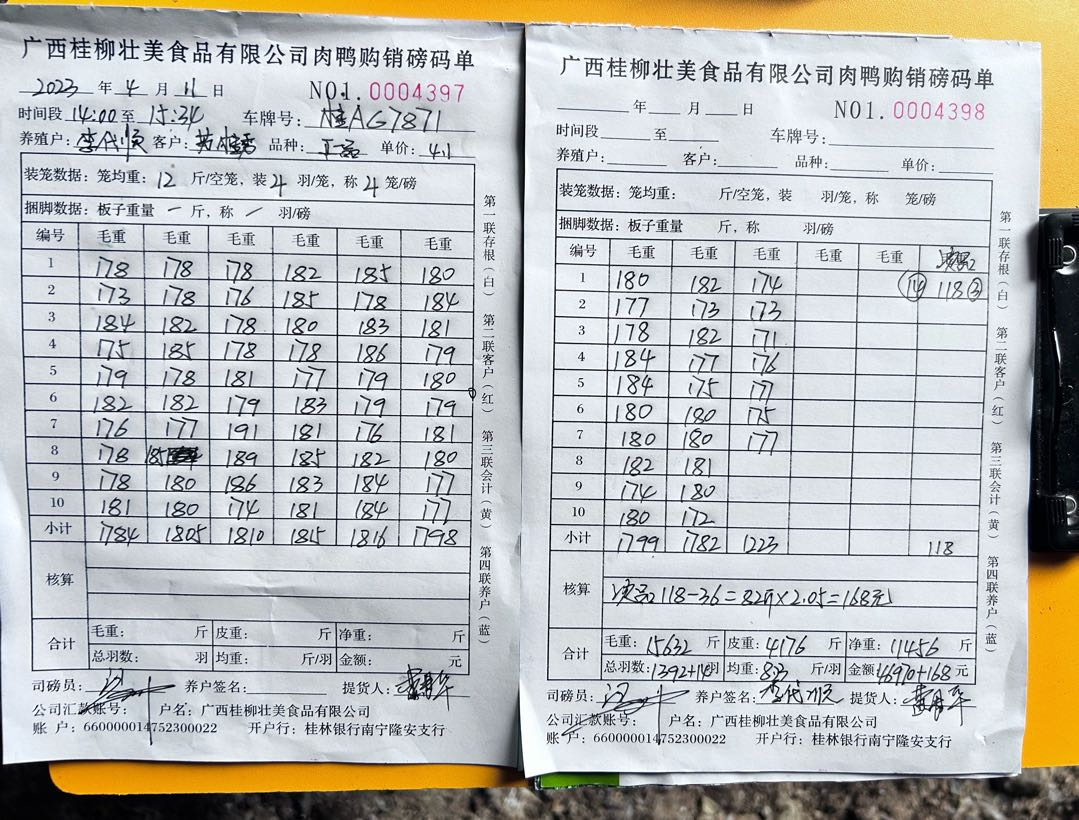 广西桂柳壮美食品有限公司肉鸭购销磅码单
2023 年 4 月 11 日 NO1. 0004397
时间段 14:00 至 15:34 车牌号: 桂AG7871
养殖户: 李代顺 客户: 品种: 正品 单价: 4.1
装笼数据: 笼均重: 12 斤/空笼, 装 4 羽/笼, 称 4 笼/磅
捆脚数据: 板子重量 一 斤, 称 / 羽/磅
编号 毛重 毛重 毛重 毛重 毛重 毛重
1 178 178 178 182 185 180
2 173 178 176 185 178 184
3 184 182 178 180 183 181
4 175 185 178 178 186 179
5 179 178 181 177 179 180
6 182 182 179 183 179 179
7 176 177 191 181 176 181
8 178 185 189 185 182 180
9 178 180 186 183 184 177
10 181 180 174 181 184 177
小计 1784 1805 1810 1815 1816 1798
核算
合计 毛重: 斤 皮重: 斤 净重: 斤
总羽数: 羽 均重: 斤/羽 金额: 元
司磅员: 养户签名: 提货人:
公司汇款账号: 户名: 广西桂柳壮美食品有限公司
账 户: 660000014752300022 开户行: 桂林银行南宁隆安支行
第一联存根(白) 第二联客户(红) 第三联会计(黄) 第四联养户(蓝)
广西桂柳壮美食品有限公司肉鸭购销磅码单
年 月 日 NO1. 0004398
时间段 至 车牌号:
养殖户: 客户: 品种: 单价:
装笼数据: 笼均重: 斤/空笼, 装 羽/笼, 称 笼/磅
捆脚数据: 板子重量 斤, 称 羽/磅
编号 毛重 毛重 毛重 毛重 毛重
1 180 182 174 14 118 3
2 177 173 173
3 178 182 171
4 184 177 176
5 184 175 177
6 180 180 175
7 180 180 177
8 182 181
9 174 180
10 180 172
小计 1799 1782 1223 118
核算 118-36=82斤×2.05=168元
合计 毛重: 15632 斤 皮重: 4176 斤 净重: 11456 斤
总羽数: 1392+14羽 均重: 8.23 斤/羽 金额 46970+168 元
司磅员: 养户签名: 李代顺 提货人:
公司汇款账号: 户名: 广西桂柳壮美食品有限公司
账 户: 660000014752300022 开户行: 桂林银行南宁隆安支行
第一联存根(白) 第二联客户(红) 第三联会计(黄) 第四联养户(蓝)